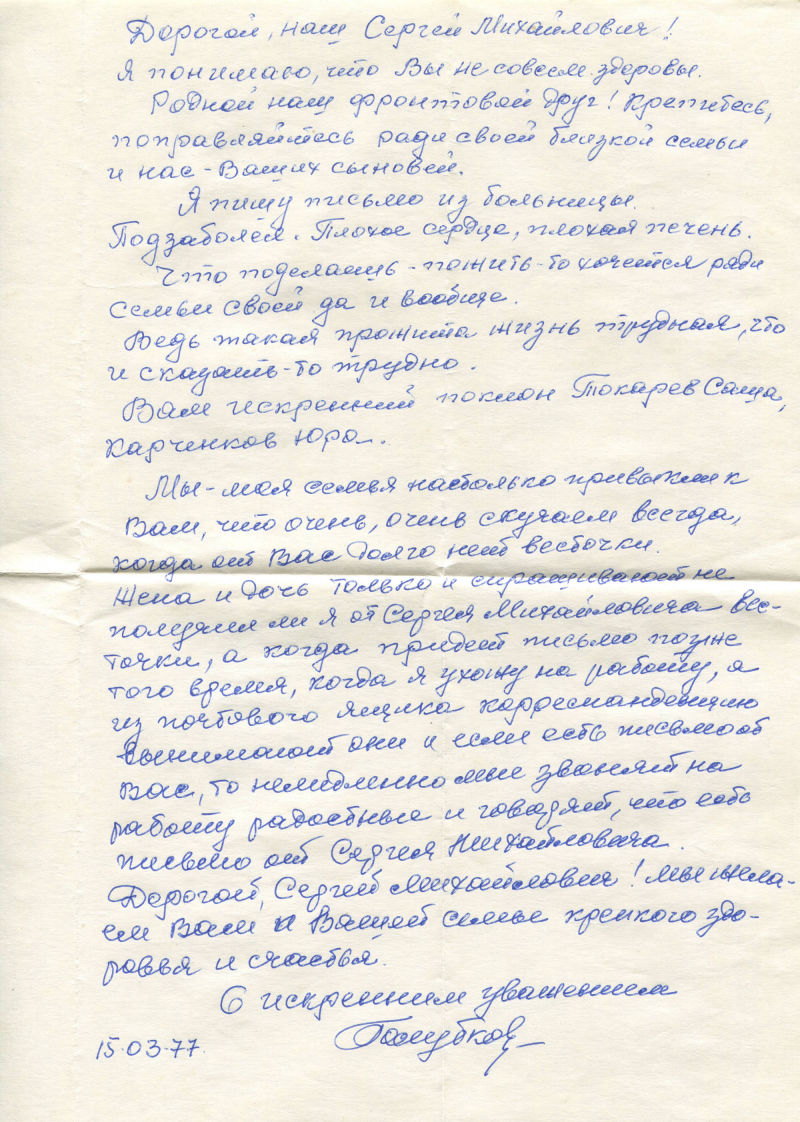 Дорогой, наш Сергей Михайлович!
Я понимаю, что Вы не совсем здоровы.
Родной наш фронтовой друг! Крепитесь,
поправляйтесь ради своей близкой семьи
и нас - Ваших сыновей.
Я пишу письмо из больницы.
Подзаболел. Плохое сердце, плохая печень.
Что поделаешь - пожить-то хочется ради
семьи своей да и вообще.
Ведь такая прожита жизнь трудная, что
и сказать-то трудно.
Вам искренний поклон Токарев Саша,
Харченков Юра.
Мы - моя семья настолько привыкли к
Вам, что очень, очень скучаем всегда,
когда от Вас долго нет весточки.
Жена и дочь только и спрашивают не
получил ли я от Сергея Михайловича вес-
точки, а когда придет письмо позже
того время, когда я ухожу на работу, а
из почтового ящика корреспонденцию
вынимают они и если есть письмо от
Вас, то немедленно мне звонят на
работу радостные и говорят, что есть
письмо от Сергея Михайловича.
Дорогой, Сергей Михайлович! Мы жела-
ем Вам и Вашей семье крепкого здо-
ровья и счастья.
С искренним уважением
Голубков
15.03.77.